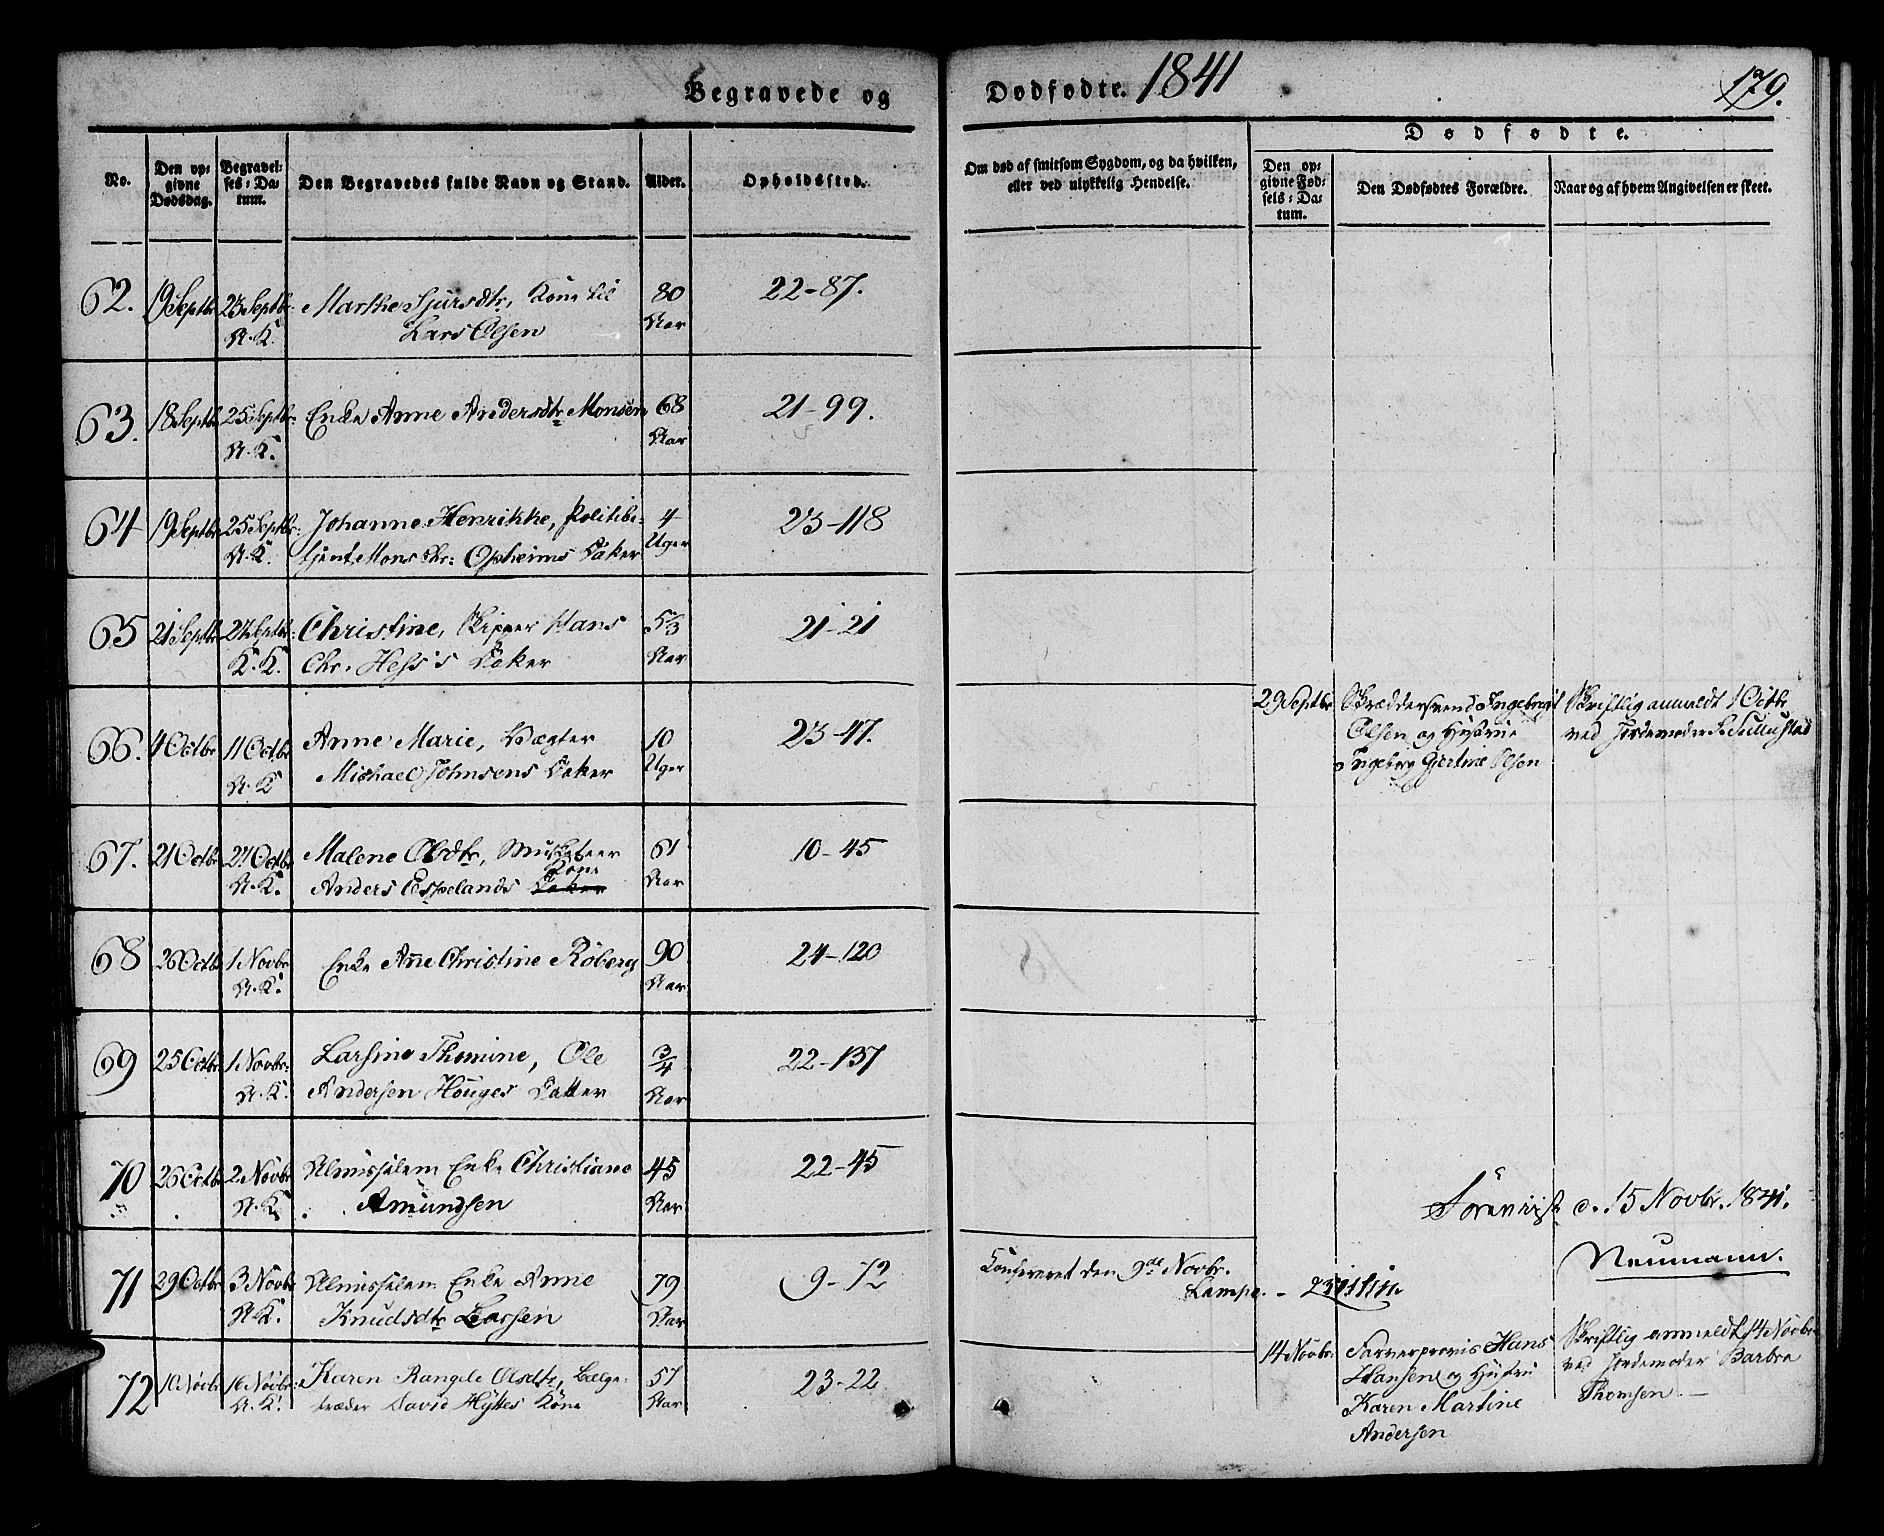 Begravede og
No.
Den op-
givne
Dødsdag.
Begravel-
ses-Da-
tum.
Den Begravedes fulde Navn og Stand.
Alder.
Opholdssted.
62. 19 Septbr 23 Septbr: Marthe Sjursdtr, Kone til 80 22-87.
N. K. Lars Olsen Aar
63. 18 Septbr 25 Septbr: Enke Anne Andersdtr Monsen 68 21-99.
N. K. Aar
64 19 Septbr 25 Septbr: Johanne Henrikke, Politibe- 4 23-118
N. K. tjent Mons Chr: Opheims Datter Uger
65 21 Septbr 27 Septbr: Christine, Skipper Hans 53 21-21
K. K. Chr. Hess's Datter Aar
66. 4 Octbr 11 Octbr Anne Marie, Vægter 10 23-47.
N. K Michael Johnsens Datter Uger
67. 21 Octbr 27 Octbr Malene Olsdtr, Musketeer 61 10-45
Kone
N. K. Anders Espelands Datter Aar
68 26 Octb 1 Novbr Enke Anne Christine Roberg 90 24-120
N. K. Aar
69 25 Octbr 1 Novbr: Larsine Thomine, Ole 3/4 22-137
N. K. Andersen Houges Datter Aar
70 26 Octbr 2 Novbr Almisselem Enke Christiane 45 22-45
N. K. Amundsen Aar
71 29 Octbr 3 Novbr Almisselem Enke Anne 79 9-72
N. K. Knudsdtr Larsen Aar
72 10 Novbr 16 Novbr: Karen Rangele Olsdtr, Bælge- 57 23-22
N. K. træder David Hyttes Kone Aar
Dødfødte. 1841
179.
Om død af smitsom Sygdom, og da hvilken,
eller ved ulykkelig Hendelse.
Dødfødte.
Den op-
givne Fød-
sels-Da-
tum.
Den Dødfødtes Forældre.
Naar og af hvem Angivelsen er skeet.
29 Septbr Skræddersvend Ingebrigt Skriftlig anmeldt 1 Octbr
Olsen og Hustrue ved Jordemoder
Ingeborg Gjertine Olsen
d. 15 Novbr. 1841.
Neumann.
Confereret den 9de Novbr.
Lampe.
14 Novbr: Farverprovis Hans Skriftlig anmeldt 14 Novbr
Hansen og Hustru ved Jordemoder Barbra
Karen Martine Thomsen.
Andersen